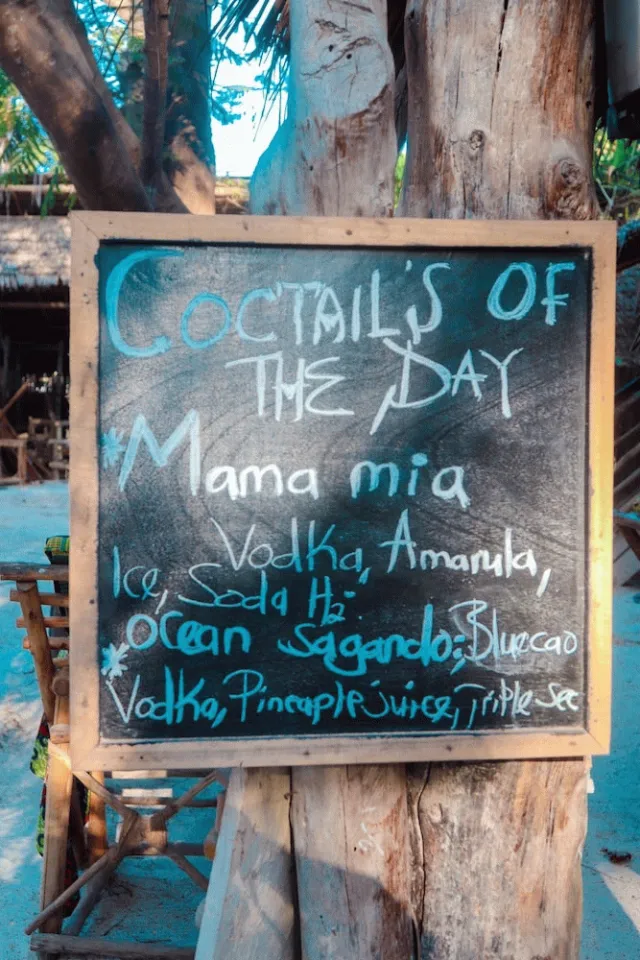 COCTAIL'S OF
THE DAY
*Mama mia
Vodka, Amarula,
Ice, Soda H₂
*Ocean Sagando; Bluecao
Vodka, Pineaple juice, Triple Sec